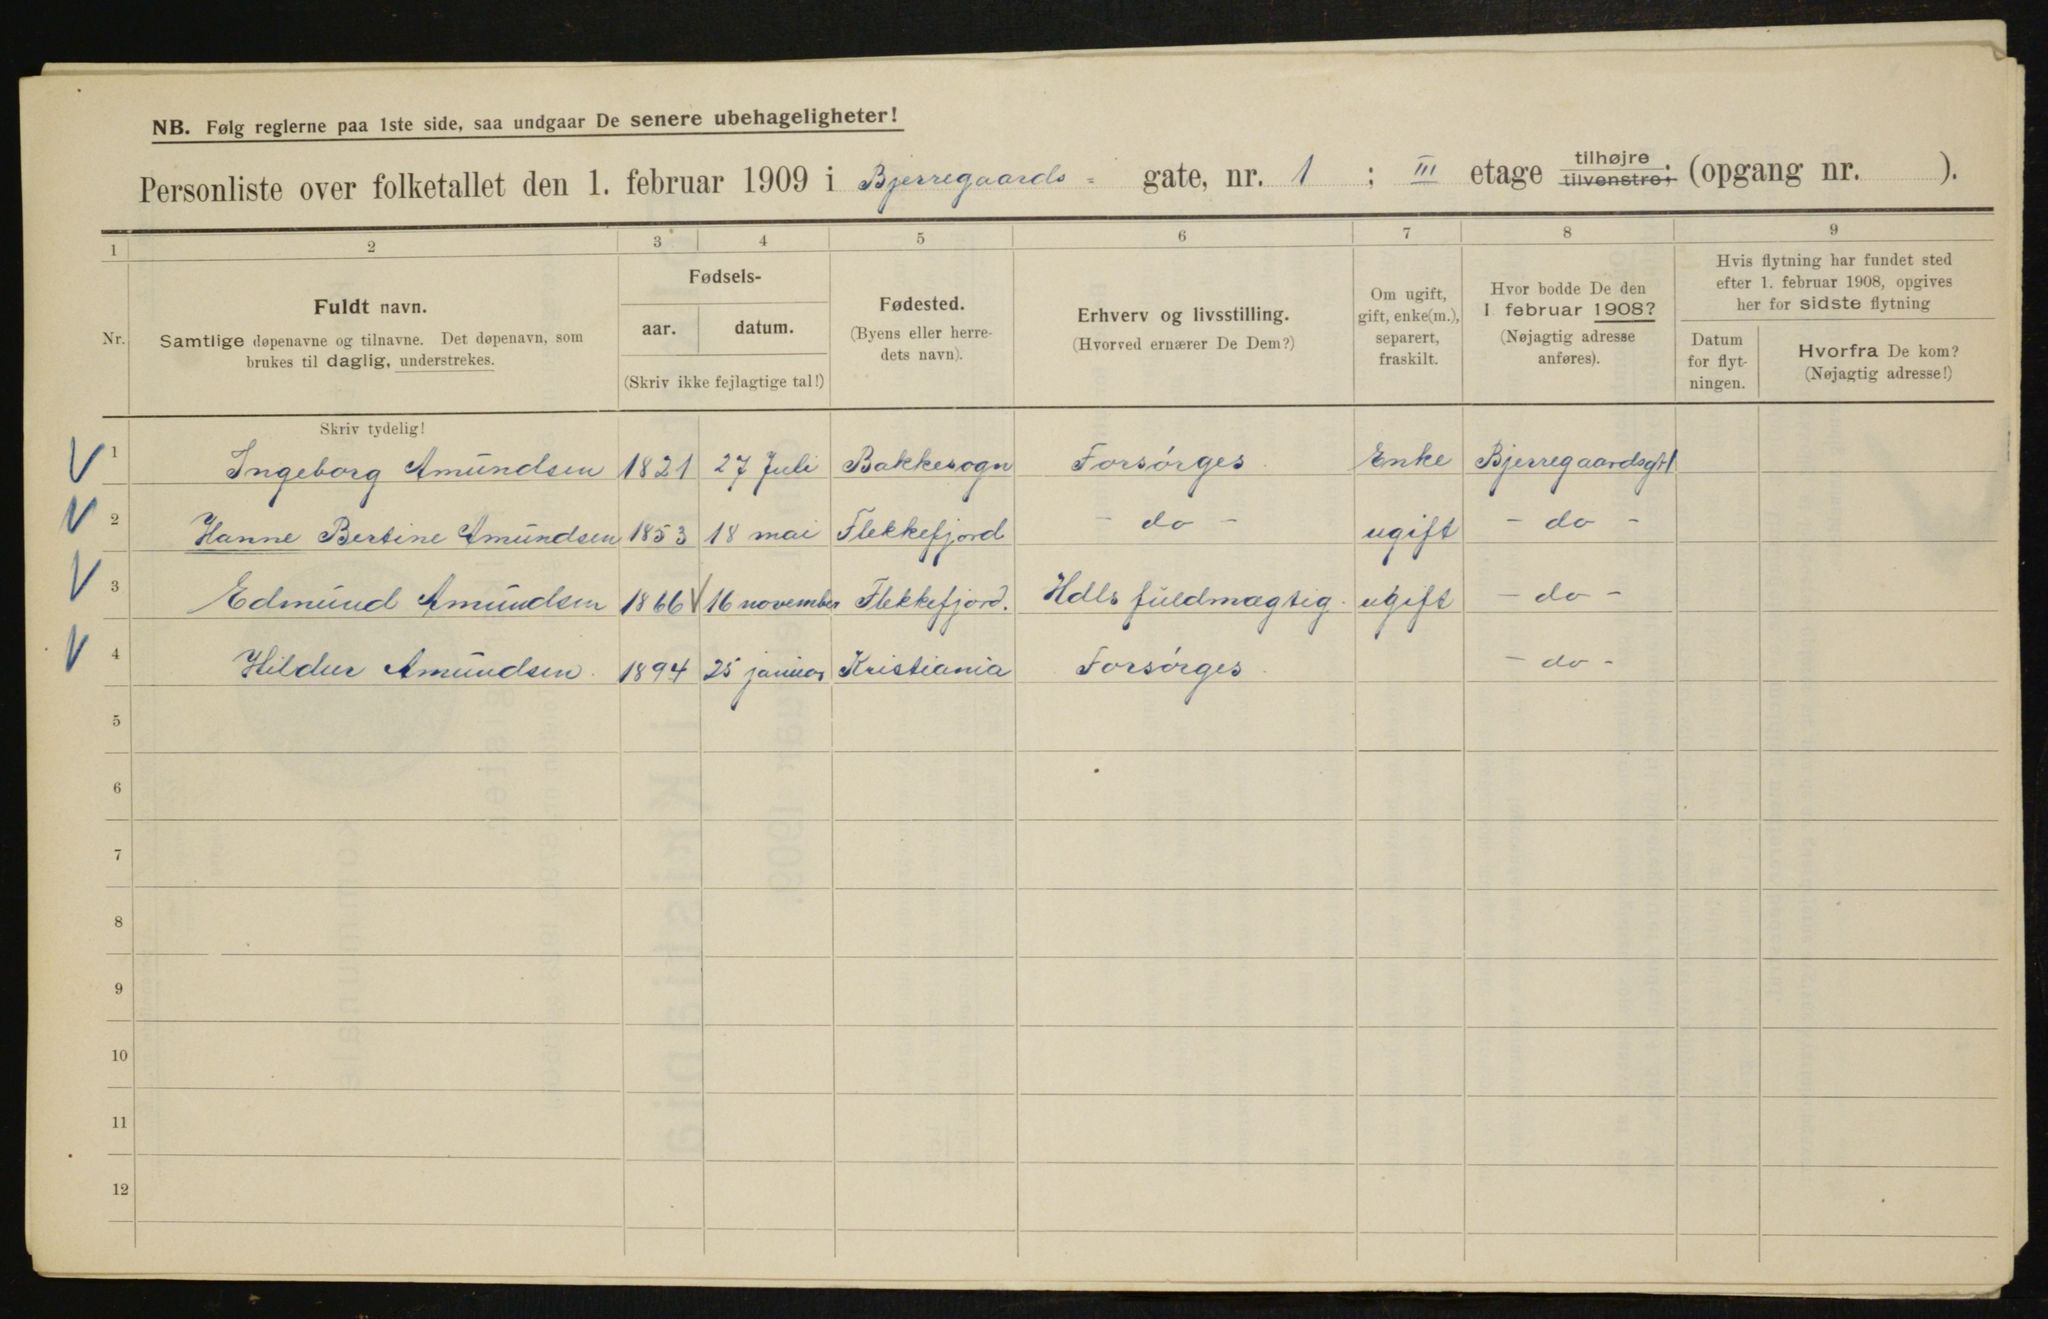 NB. Følg reglerne paa 1ste side, saa undgaar De senere ubehageligheter!
Personliste over folketallet den 1. februar 1909 i Bjerregaards- gate, nr. 1 ; III etage tilhøjre tilvenstre; (opgang nr. ).
1 2 3 4 5 6 7 8 9
Nr.
Fuldt navn.
Samtlige døpenavne og tilnavne. Det døpenavn, som
brukes til daglig, understrekes.
Skriv tydelig!
Fødsels-
aar. datum.
(Skriv ikke fejlagtige tal!)
Fødested.
(Byens eller herre-
dets navn).
Erhverv og livsstilling.
(Hvorved ernærer De Dem?)
Om ugift,
gift, enke(m.),
separert,
fraskilt.
Hvor bodde De den
1 februar 1908?
(Nøjagtig adresse
anføres).
Hvis flytning har fundet sted
efter 1. februar 1908, opgives
her for sidste flytning
Datum
for flyt-
ningen.
Hvorfra De kom?
(Nøjagtig adresse!)
1 Ingeborg Amundsen 1821 27 Juli Bakkesogn Forsørges Enke Bjerregaardsgt 1
2 Hanne Bertine Amundsen 1853 18 mai Flekkefjord - do - ugift - do -
3 Edmund Amundsen 1866 16 november Flekkefjord. Hdls fuldmægtig. ugift - do -
4 Hildur Amundsen. 1894 25 januar Kristiania Forsørges - do -
5
6
7
8
9
10
11
12